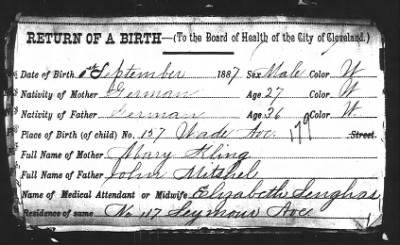 RETURN OF A BIRTH—(To the Board of Health of the City of Cleveland.)
Date of Birth September 1887. Sex Male Color W
Nativity of Mother German Age 27 Color W
Nativity of Father German Age 36 Color W.
Place of Birth (of child) No. 157 Wade Ave. 179 Street.
Full Name of Mother Mary Kling
Full Name of Father John Mitshel
Name of Medical Attendant or Midwife Elizabeth Senghas
Residence of same No 117 Seymour Ave